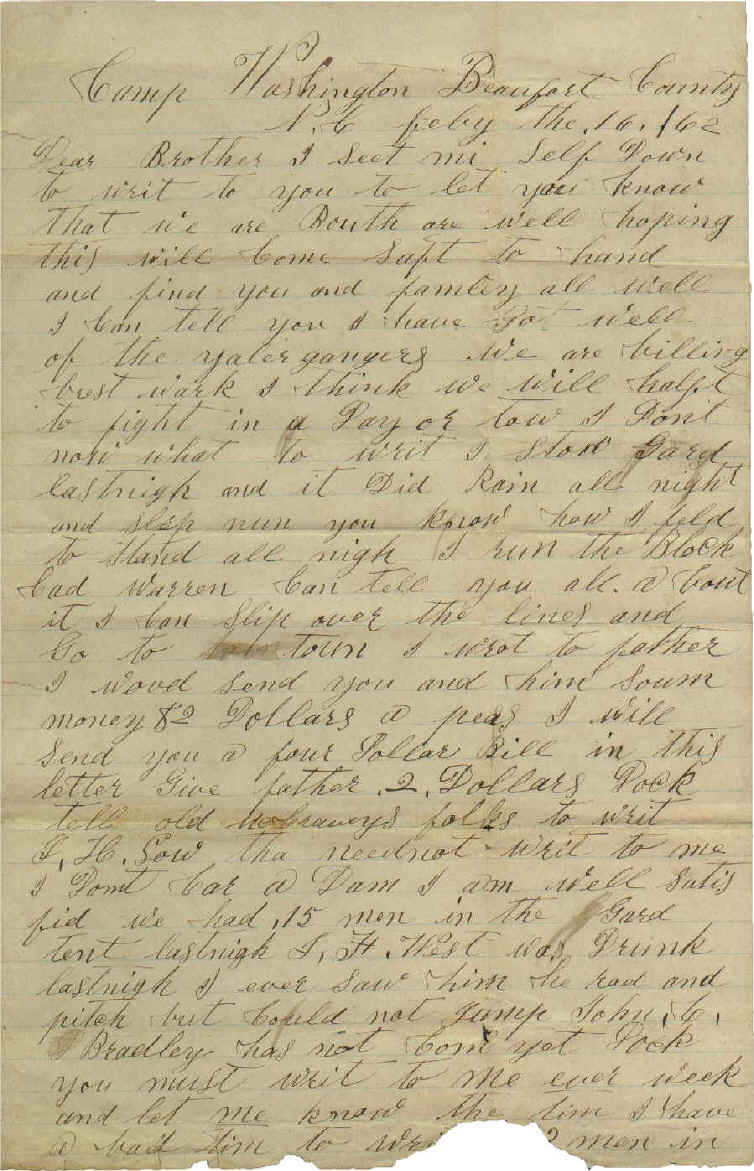 Camp Washington Beaufort County
N. C feby the. 16. /62
Dear Brother I Seet mi Self Down
to writ to you to let you know
that we are Bouth are well hoping
this will Come Saft to hand
and find you and famley all well
I Can tell you I have Got well
of the yaler gangers We are billing
brest wark I think we will halft
to fight in a Day or tow I Dont
now what to writ I Stod Gard
lastnigh and it Did Rain all night
and slep nun you know how I feld
to Stand all nigh I run the Block
Cad Warren Can tell you all. a bout
it I Can Slip over the lines and
Go to town I wrot to father
I woud Send you and him Soum
money $2 Dollars a peas I will
Send you a four Dollar Bill in this
letter Give father .2. Dollars Dock
tell old folks to writ
H. tha neednot writ to me
I Dont Car a Dam I am well Satis
fid we had .15 men in the Gard
tent lastnigh West was Drunk
lastnigh I ever Saw him he rad and
pitch but Could not Jump John. C.
Bradley has not Com yet Dock
you must writ to me ever week
and let me know the tim I have
a bad tim to men in